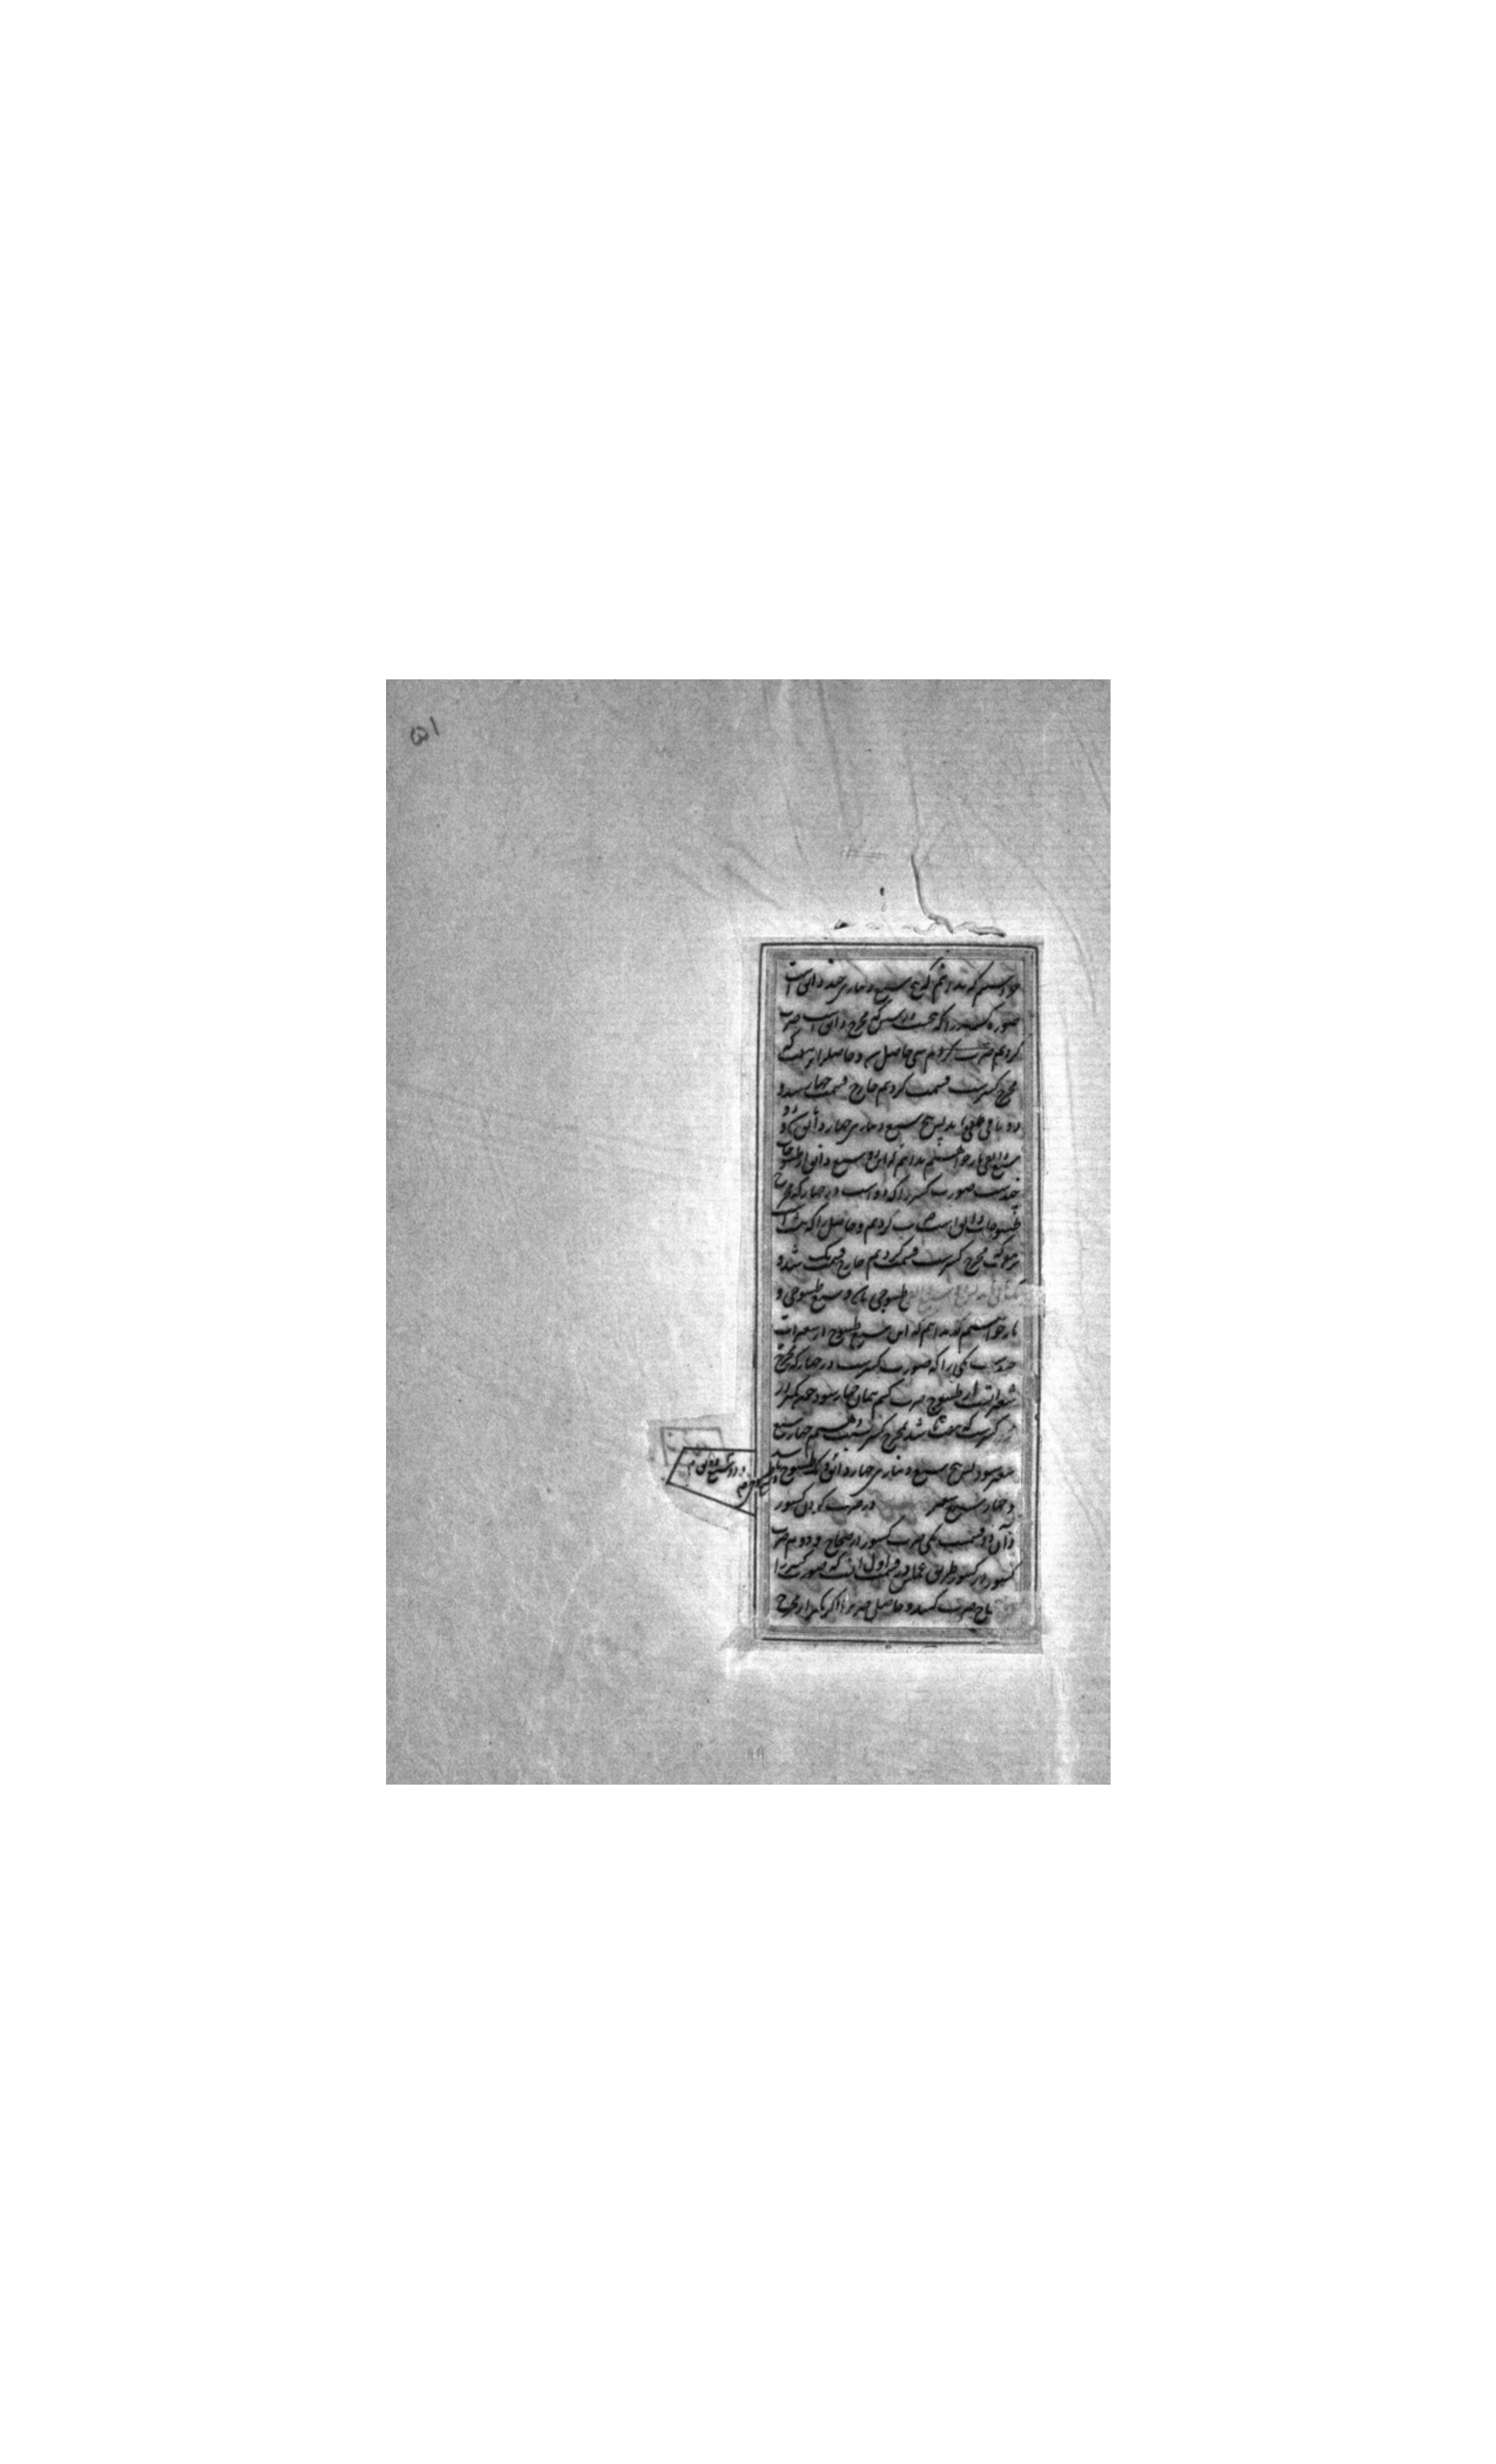 ۵۱
خواستیم که بدانیم که پنج سبع دیناری چند دانق است
صورت کسر را که پنجست در شش که مخرج دانق است ضرب
کردیم ضرب کردیم سی حاصل شد و حاصل را بر هفت که
مخرج کسرست قسمت کردیم خارج قسمت چهار شد و
دو باقی ماند پس پنج سبع دیناری چهار دانق و دو
سبع دانقی باز خواستیم بدانیم که این دو سبع دانق از طسوجات
چندست صورت کسر را که دو است در چهار که مخرج
طسوجات دانق است ضرب کردیم و حاصل را که هشت است
بر هفت که مخرج کسرست قسمت کردیم خارج قسمت یک شد و
طسوجی و سبع طسوجی و
باز خواستیم که بدانیم که این سبع طسوج از شعیرات
چندست یکی را که صورت کسرست در چهار که مخرج
شعیرات از طسوج ضرب کنیم همان چهار شود
کسرست که هفت باشد مخرج کسر نسبت دهیم چهار سبع
شعیر شود پس پنج سبع دیناری چهار دانق و یک طسوج باشد
و چهار سبع شعیر در ضرب کردن کسور
و آن دو قسمت یکی ضرب کسور در صحاح و دویم ضرب
کسور در کسور طریق عمل در قسم اول آنست که صورت کسر را
ضرب کنند و حاصل ضرب را اگر یک بار از مخرج
و دو سبع دانق م